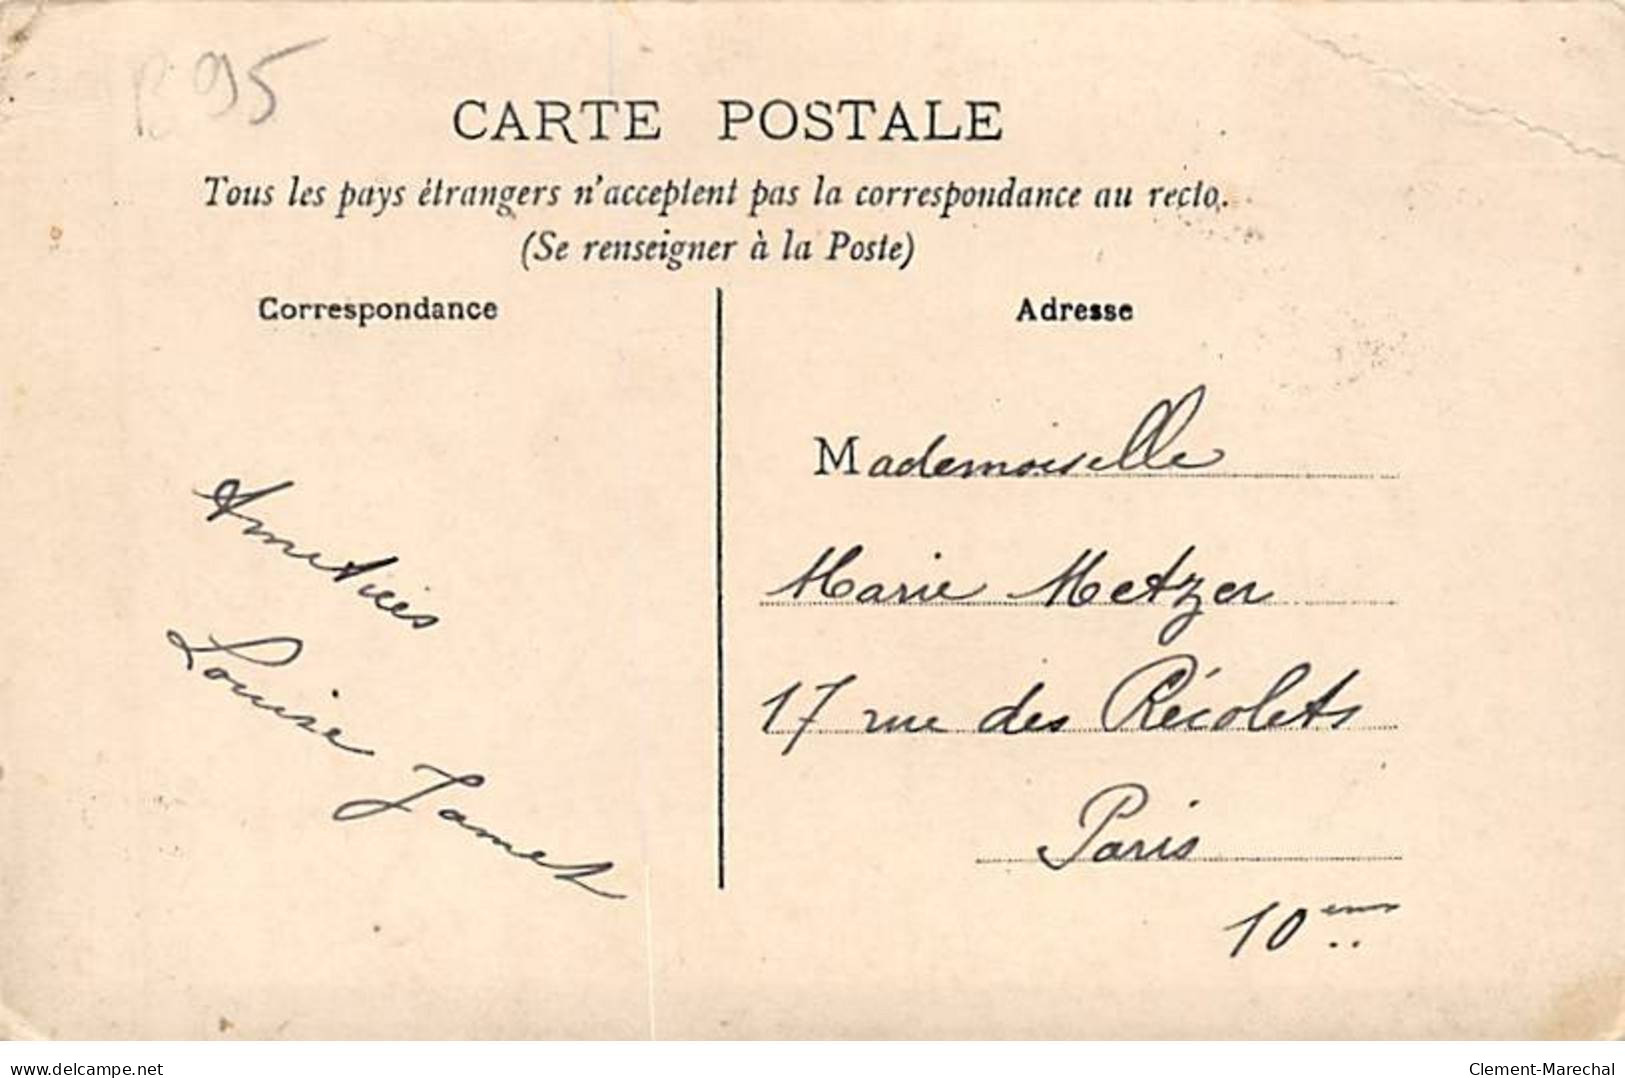 95
CARTE POSTALE
Tous les pays étrangers n'acceptent pas la correspondance au recto.
(Se renseigner à la Poste)
Correspondance
Adresse
Amitiés
Louise Jamet
Mademoiselle
Marie Metzer
17 rue des Récolets
Paris
10ème
delcampe.net
Clement-Marechal